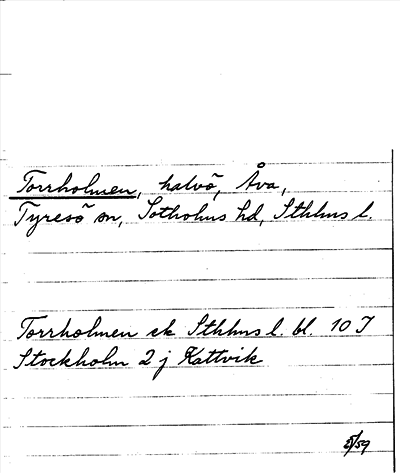 Torrholmen, halvö, Åva,
Tyresö sn, Sotholms hd, Sthlms l.
Torrholmen ek Sthlms l. bl. 10 I
Stockholm 2 j Kattvik
5/59